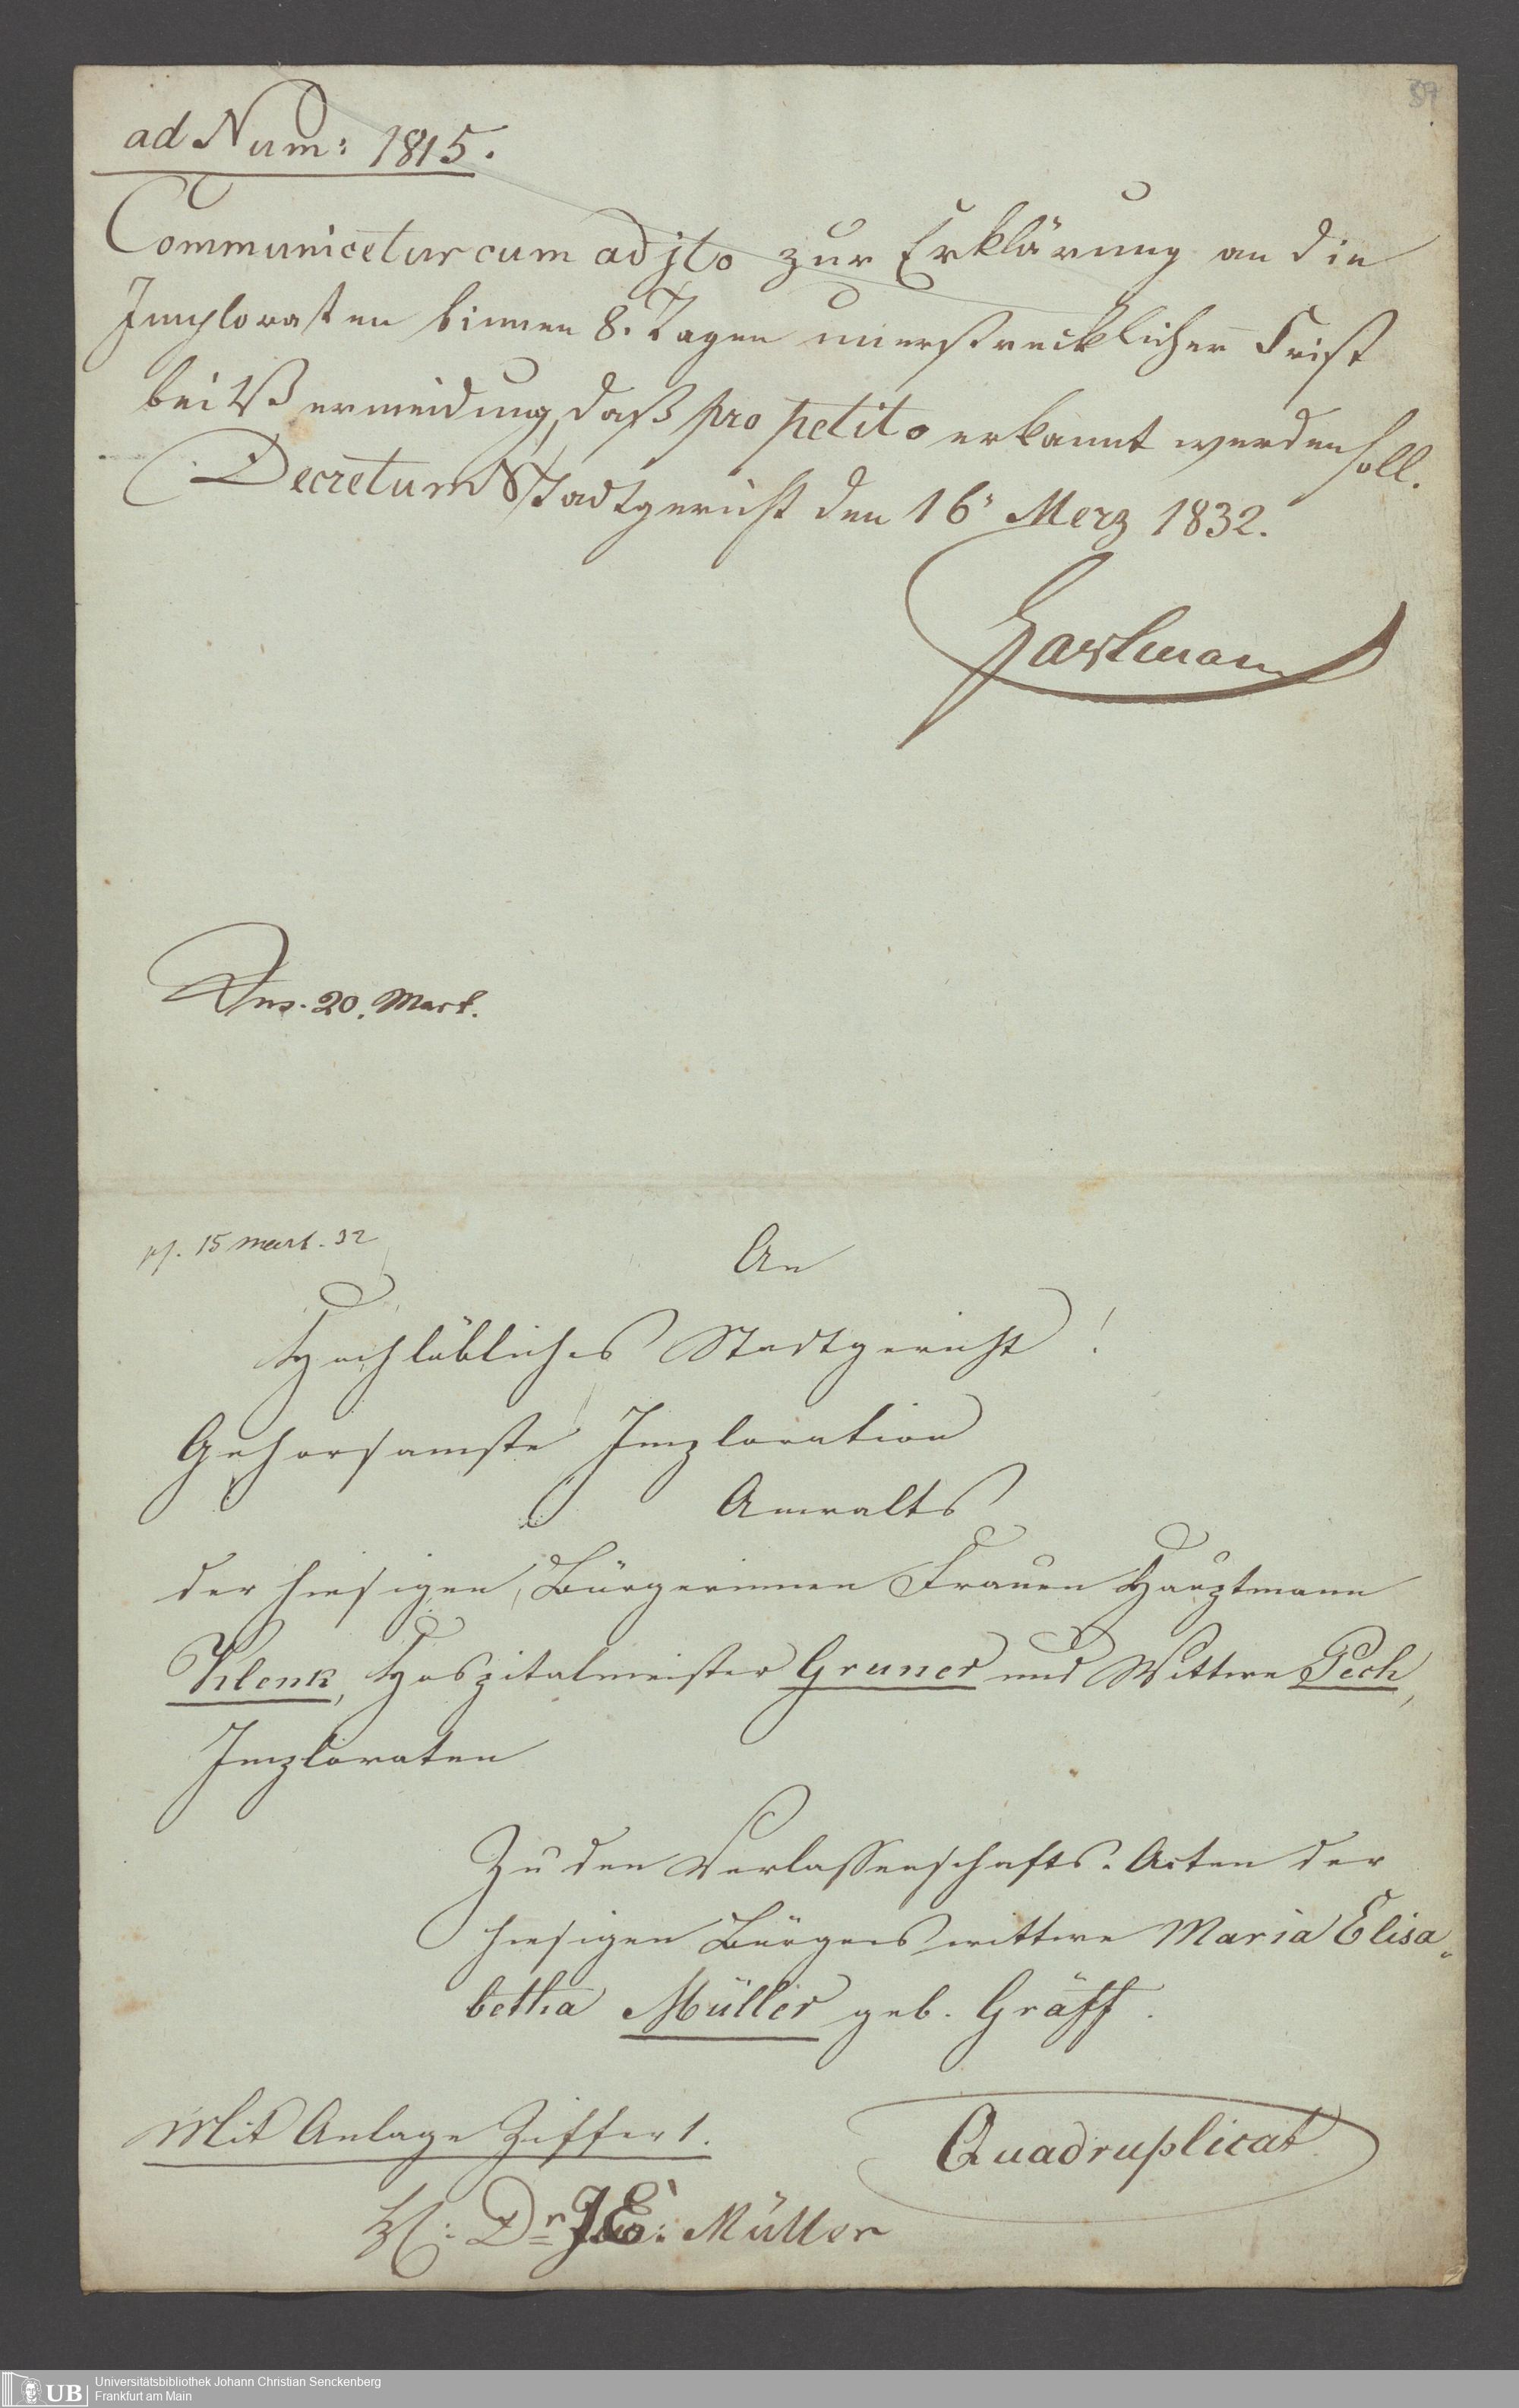 37
ad Num: 1815.
Communicetur cum adjto zur Erklärung an die
Imploraten binnen 8. Tagen unerstrecklicher Frist
bei Vermeidung, daß pro petito erkannt werden soll.
Decretum Stadtgericht den 16. Merz 1832.
Hartmann
Ins. 20. Mart.
ps. 15 Mart. 32
An
Hochlöbliches Stadtgericht!
Gehorsamste Imploration
Anwalts
der hiesigen Bürgerinnen Frauen Hauptmann
Klenk, Hospitalmeister Gruner und Wittwe Pech,
Imploraten
Zu den Verlassenschafts-Acten der
hiesigen Bürgerswittwe Maria Elisa-
betha Müller geb. Gräff.
Mit Anlage Ziffer 1.
Quadruplicat
H: Dr JE: Müller
UB
Universitätsbibliothek Johann Christian Senckenberg
Frankfurt am Main